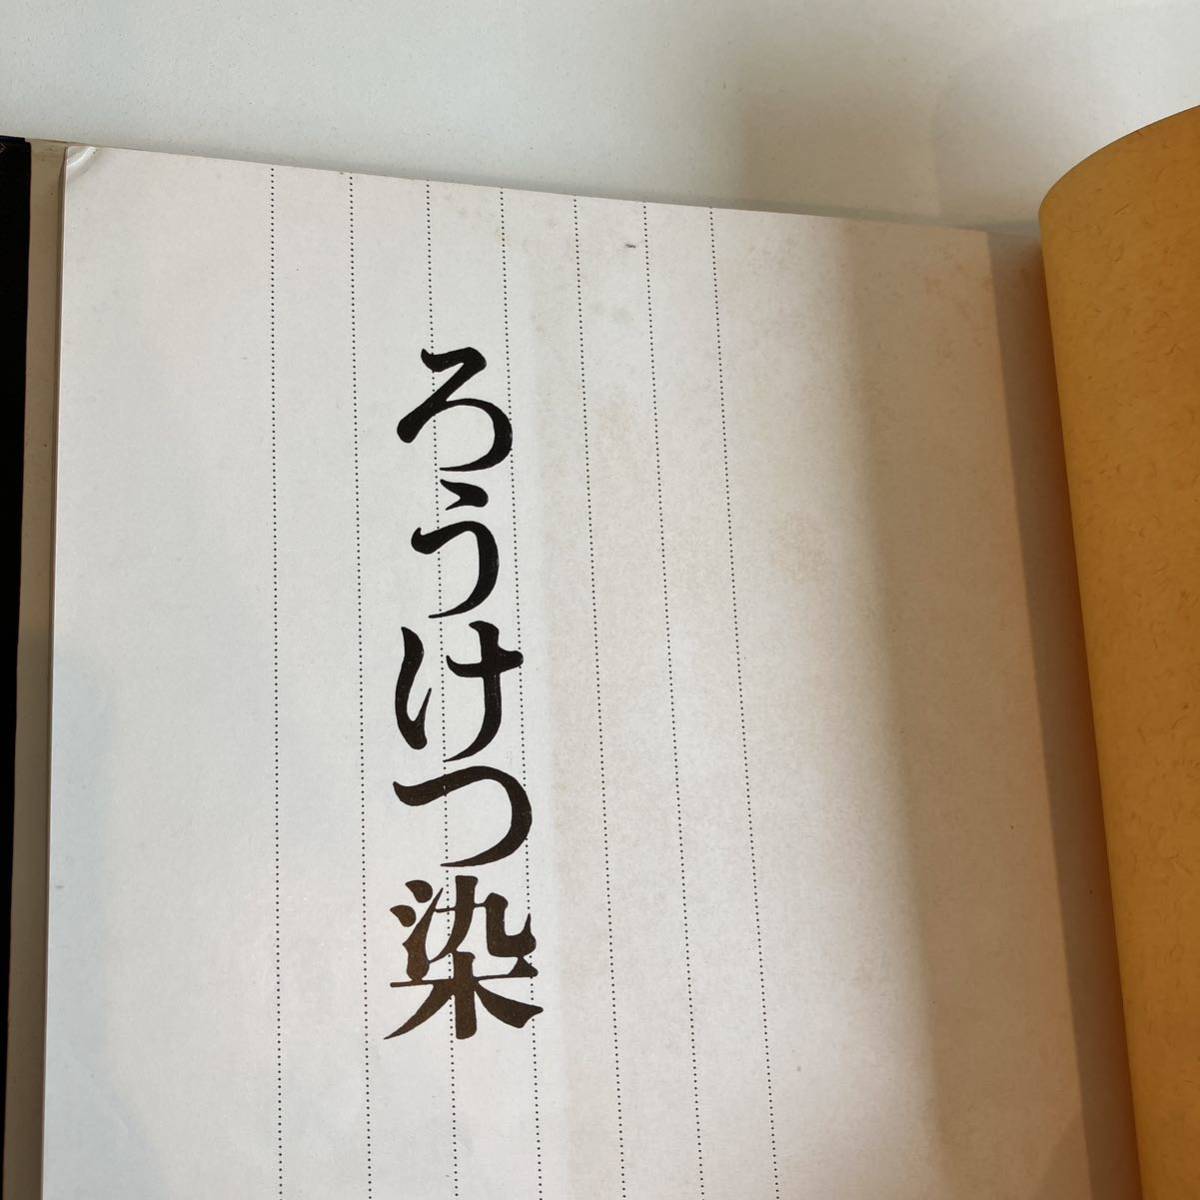 ろうけつ染